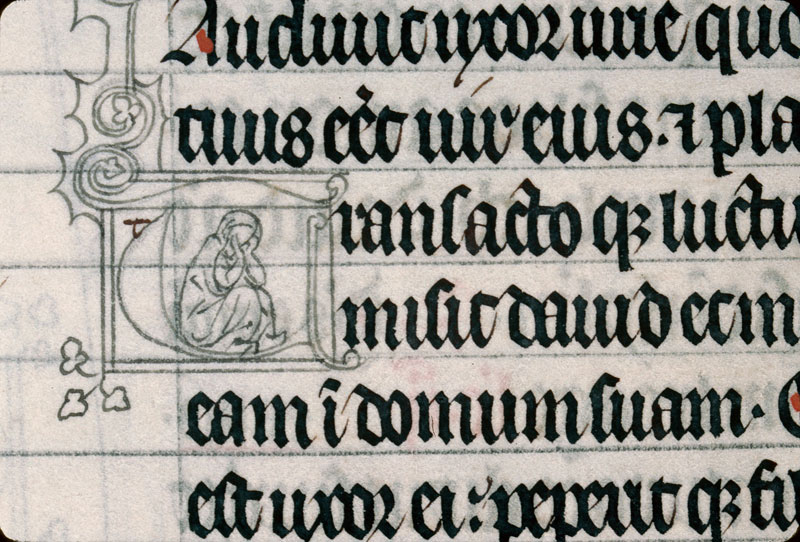 Audiuit uxor urie quo
tuus eēt uir eius. ⁊ pla
Transacto qꝫ luctu
misit dauid et in
eam ī domum suam.
est uxor ei: peperit qꝫ fil